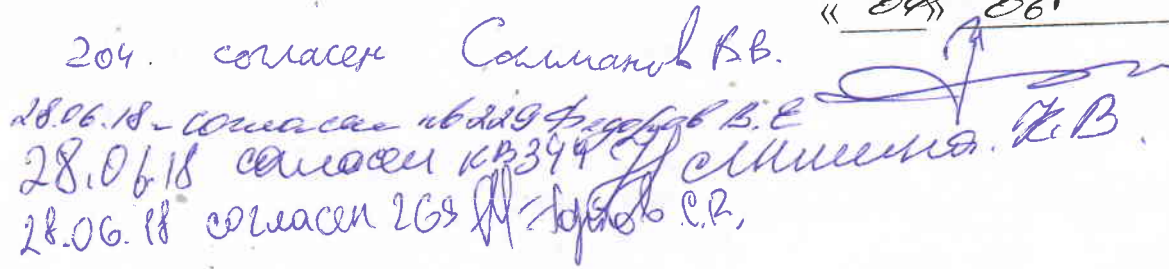 « 04» 06.
204. согласен Салманов В.В.
28.06.18 - согласен кв 229 Федоров В.Е
28.06.18 согласен кв 344 К.В.
28.06.18 согласен 269 С.В.